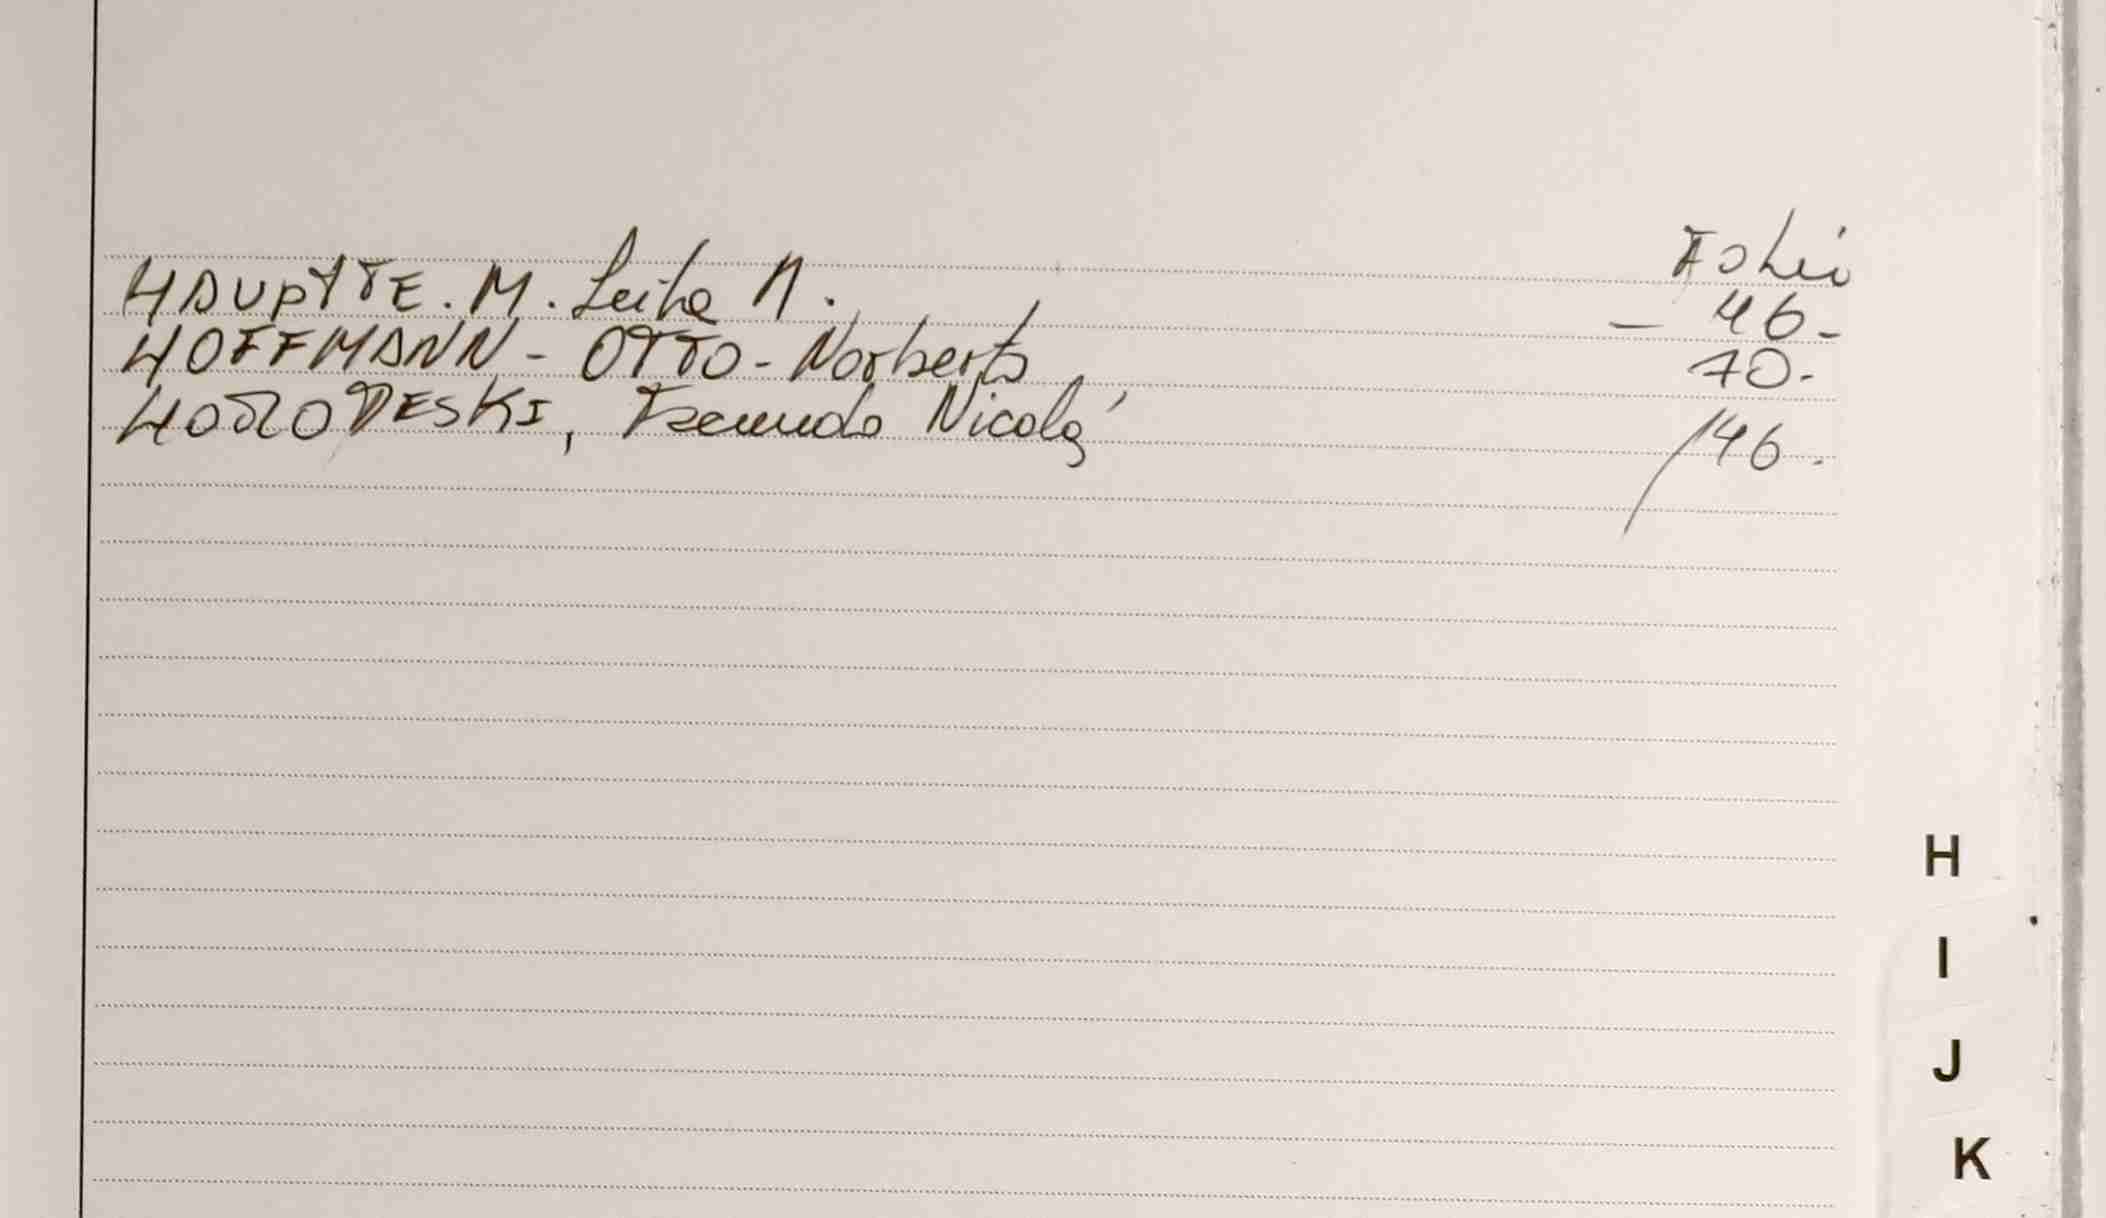 Folio
HAUPTTE. M. Leila N. - 46-
HOFFMANN - OTTO - Norberto 70.
HORODESKI, Facundo Nicolá 146.
H
I
J
K